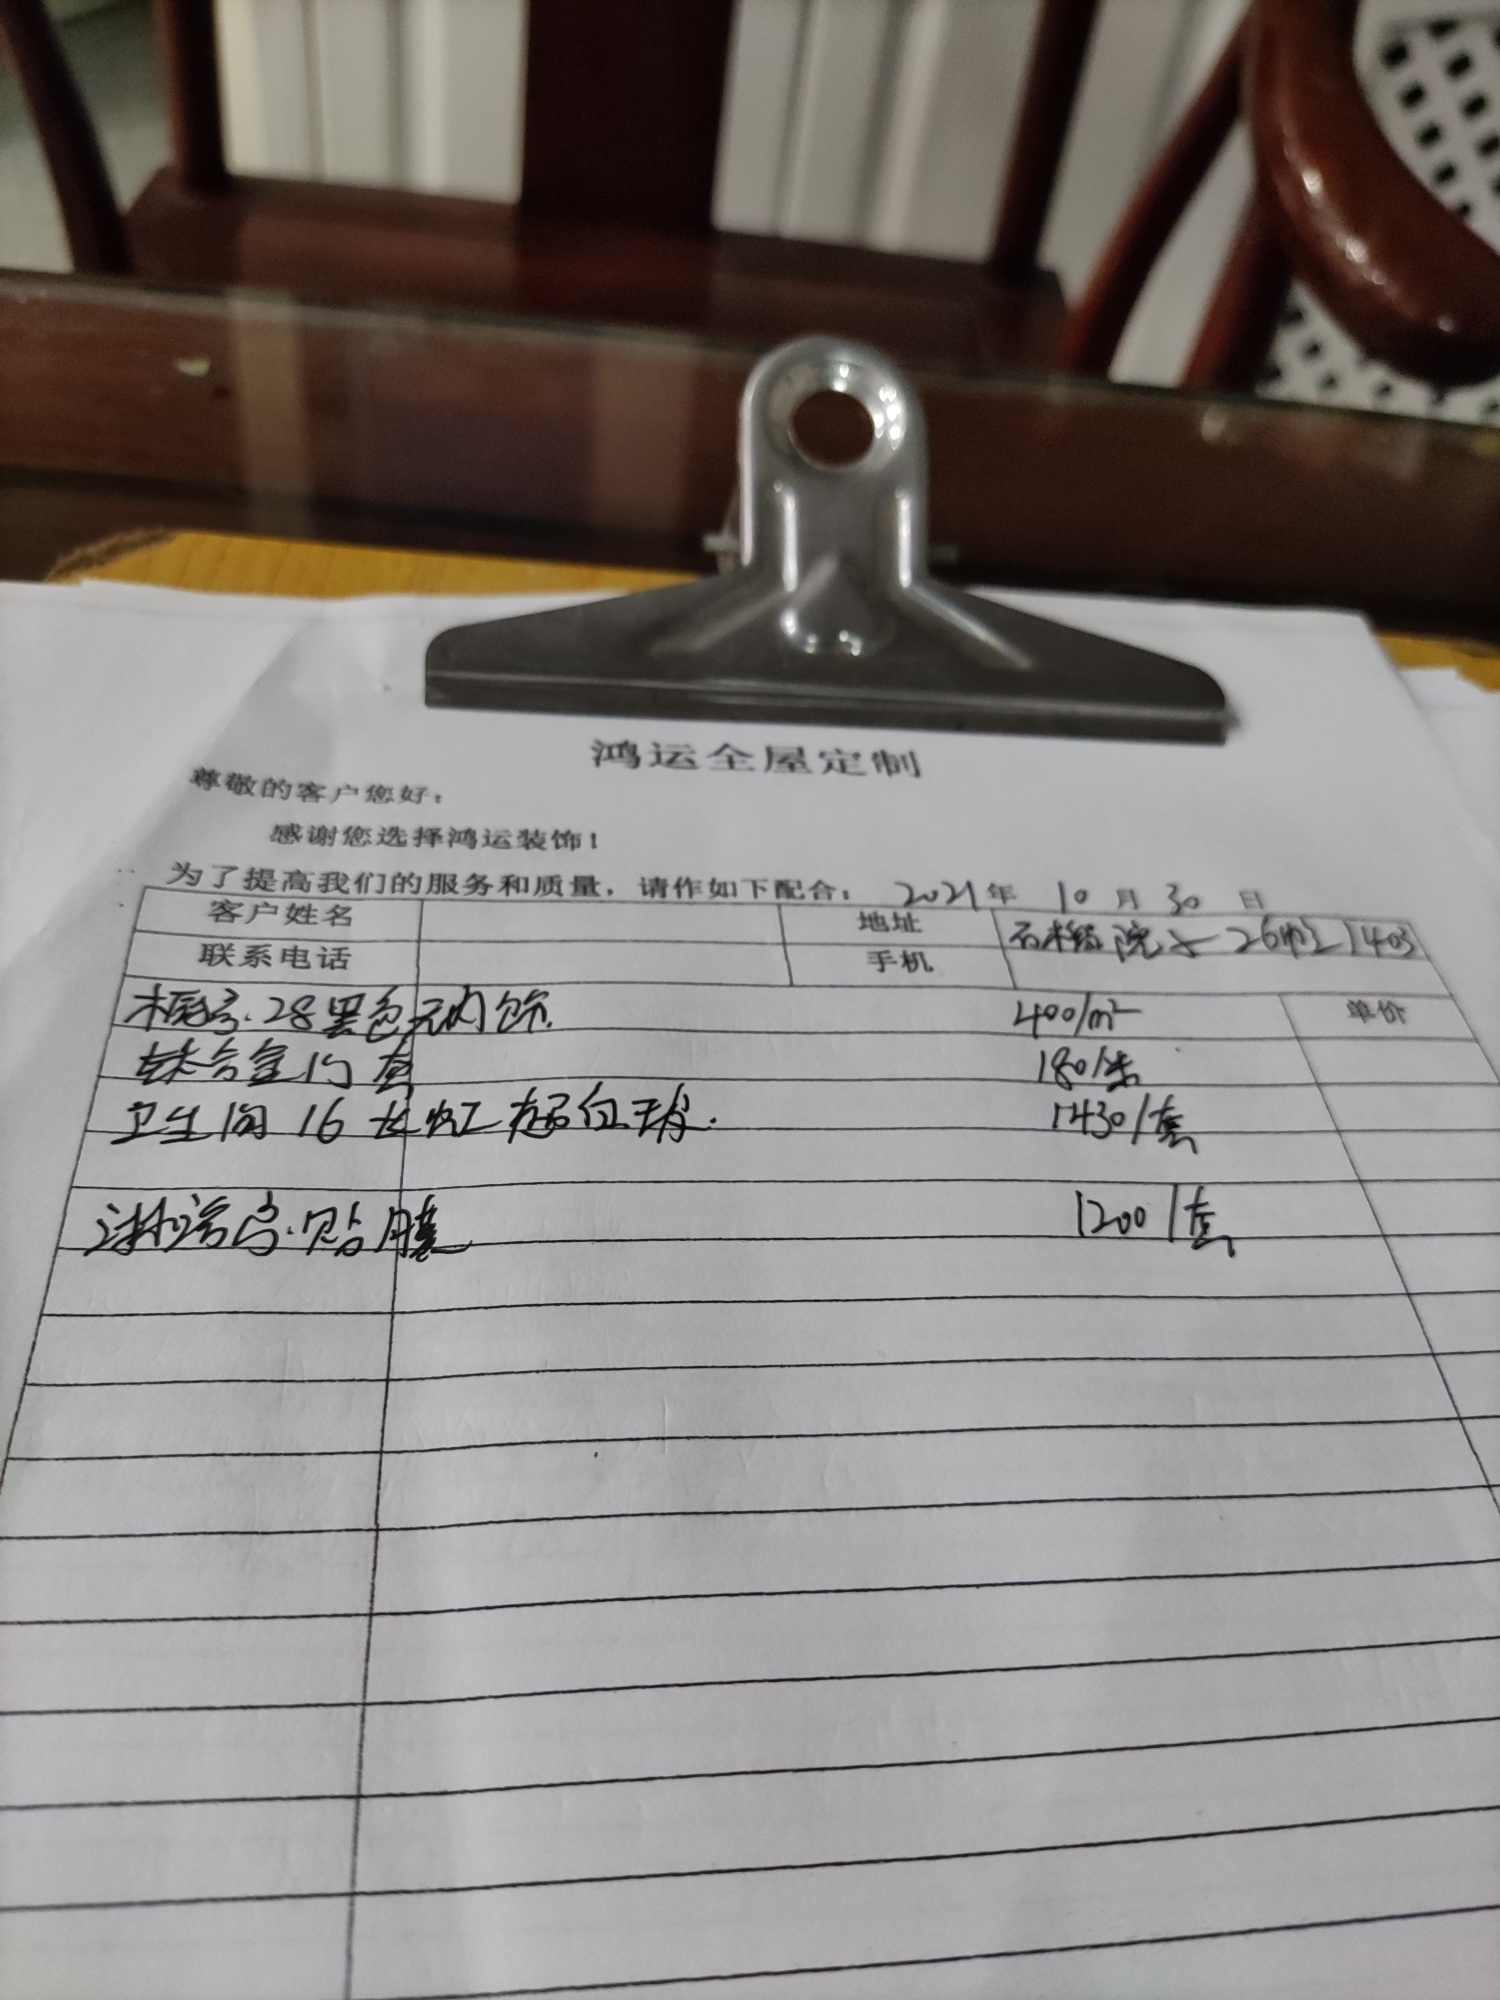 鸿运全屋定制
尊敬的客户您好：
感谢您选择鸿运装饰！
为了提高我们的服务和质量，请作如下配合： 2021年 10月30日
客户姓名 地址 26 1403
联系电话 手机
28黑色 400/m² 单价
合金门套 180/米
卫生间16长虹 1430/套
淋浴房.贴膜 1200/套